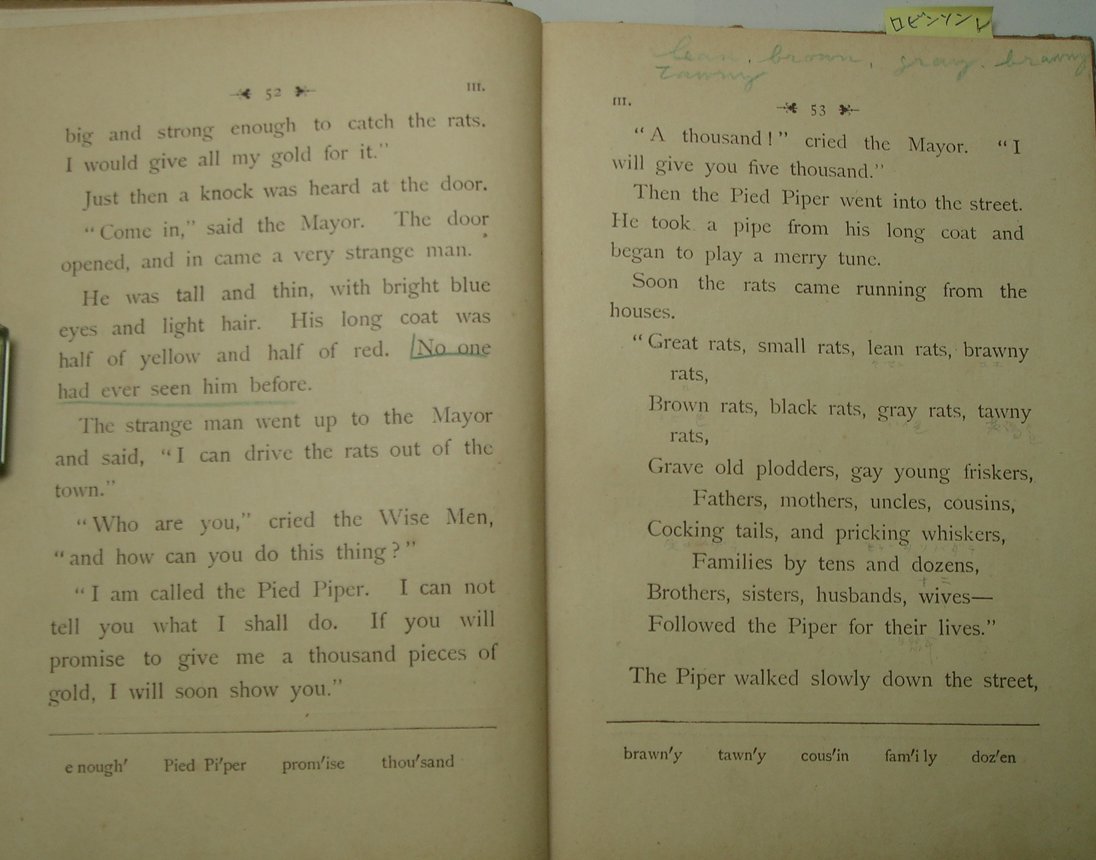 52 III.
big and strong enough to catch the rats.
I would give all my gold for it."
Just then a knock was heard at the door.
"Come in," said the Mayor. The door
opened, and in came a very strange man.
He was tall and thin, with bright blue
eyes and light hair. His long coat was
half of yellow and half of red. No one
had ever seen him before.
The strange man went up to the Mayor
and said, "I can drive the rats out of the
town."
"Who are you," cried the Wise Men,
"and how can you do this thing?"
"I am called the Pied Piper. I can not
tell you what I shall do. If you will
promise to give me a thousand pieces of
gold, I will soon show you."
e nough' Pied Pi'per prom'ise thou'sand
ロビンソン
lean, brown, gray, brawny
tawny
III. 53
"A thousand!" cried the Mayor. "I
will give you five thousand."
Then the Pied Piper went into the street.
He took a pipe from his long coat and
began to play a merry tune.
Soon the rats came running from the
houses.
"Great rats, small rats, lean rats, brawny
rats,
Brown rats, black rats, gray rats, tawny
rats,
Grave old plodders, gay young friskers,
Fathers, mothers, uncles, cousins,
Cocking tails, and pricking whiskers,
Families by tens and dozens,
Brothers, sisters, husbands, wives—
Followed the Piper for their lives."
The Piper walked slowly down the street,
brawn'y tawn'y cous'in fam'i ly doz'en